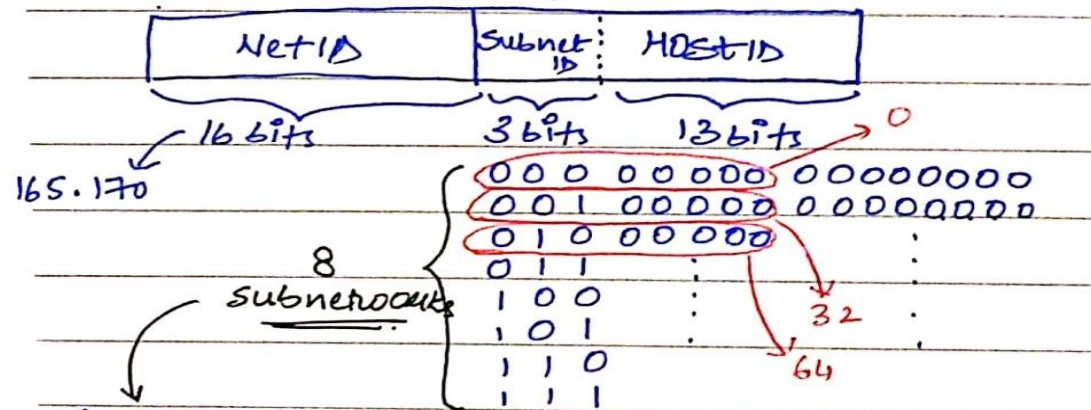 NetID Subnet ID HOSTID
16 bits 3 bits 13 bits 0
165.170 0 0 0 0 0 0 0 0 0 0 0 0 0 0 0 0
0 0 1 0 0 0 0 0 0 0 0 0 0 0 0 0
0 1 0 0 0 0 0 0
8 0 1 1
1 0 0 32
1 0 1
1 1 0 64
1 1 1